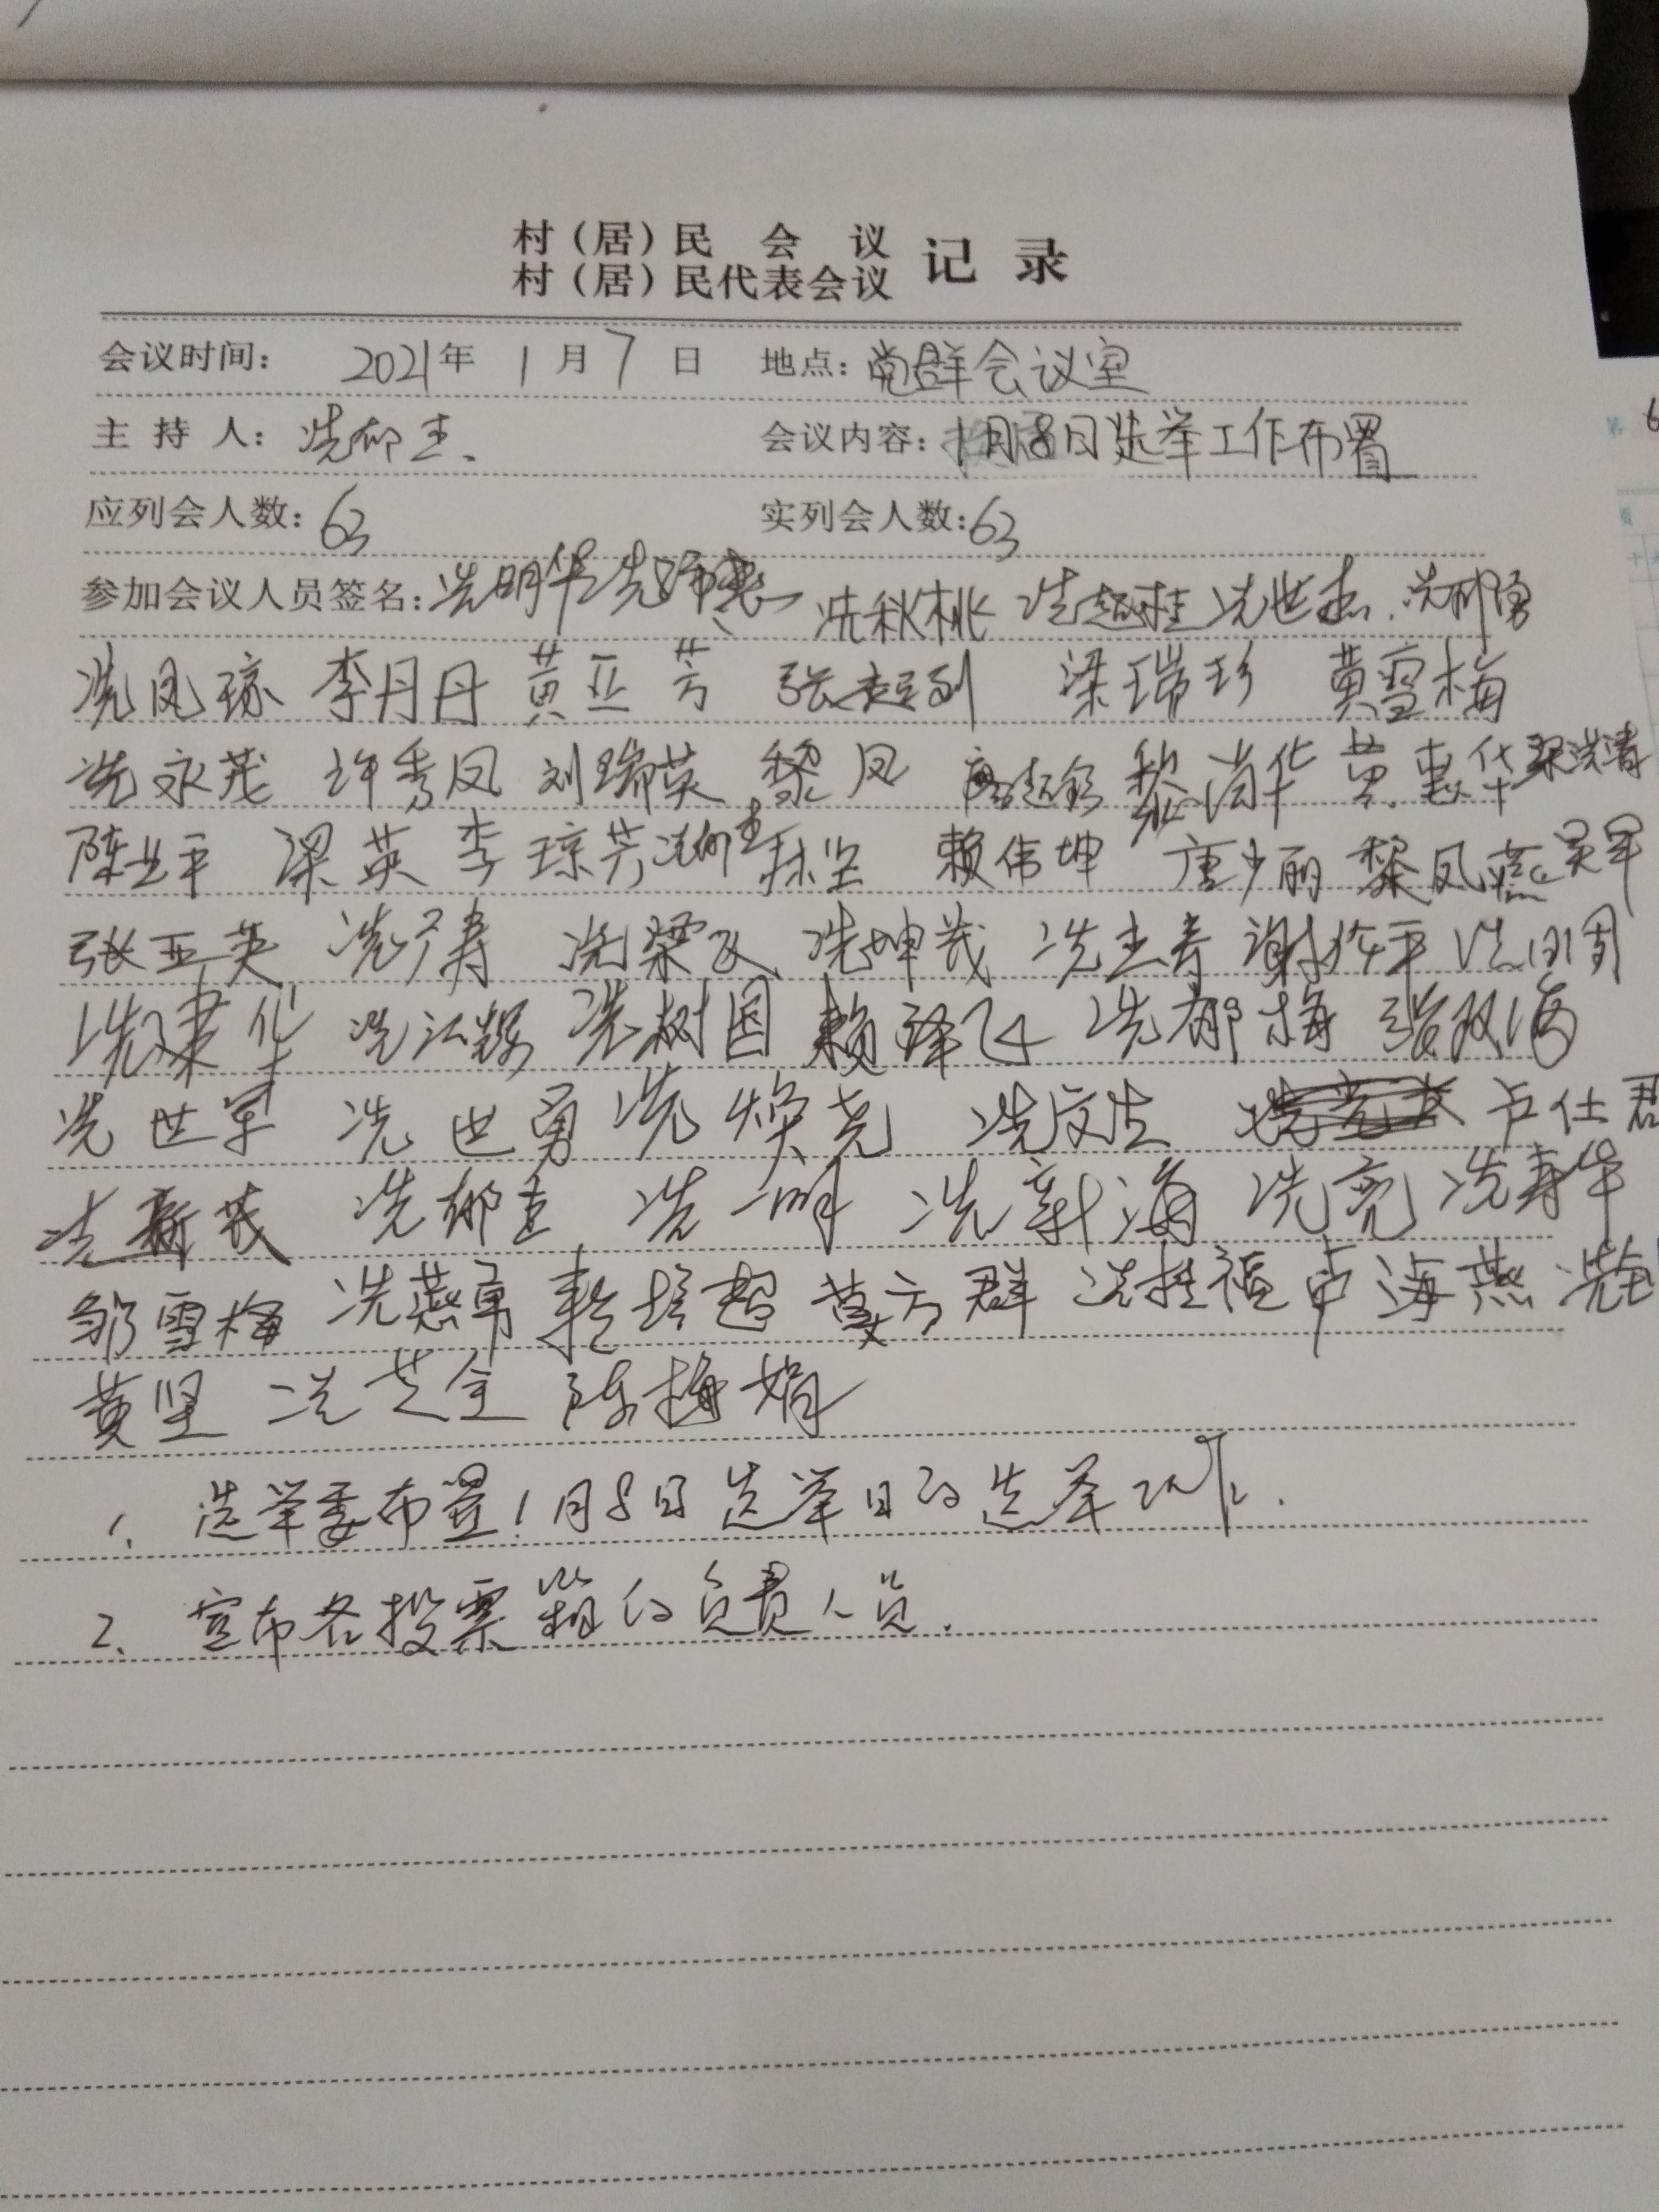 村（居）民会议
村（居）民代表会议 记录
会议时间： 2021年 1月 7日 地点：党群会议室
主持人：冼郁圭、 会议内容：1月8日选举工作布置
应列会人数：63 实列会人数：63
参加会议人员签名：冼明华 冼秋桃 冼超桂 冼世杰
冼凤琼 李丹丹 黄亚芳 张超列 梁瑞珍 黄雪梅
冼永茂 许秀凤 刘瑞英 黎凤 黎尚华 黄惠华
陈业平 梁英 李琼芳 赖伟坤 唐少丽 黎凤燕 吴军
张亚英 冼坤茂
冼建华 冼树国 赖泽飞 冼郁梅 张双海
冼世军 冼世勇 冼焕尧 冼汝生 卢仕君
冼新茂 冼郁圭 冼一明 冼新海 冼亮 冼寿华
邹雪梅 冼燕勇 莫方群 冼桂福 卢海燕
黄坚 冼芝全 陈梅娟
1、选举委布置1月8日选举日的选举工作.
2、宣布各投票箱的负责人员.